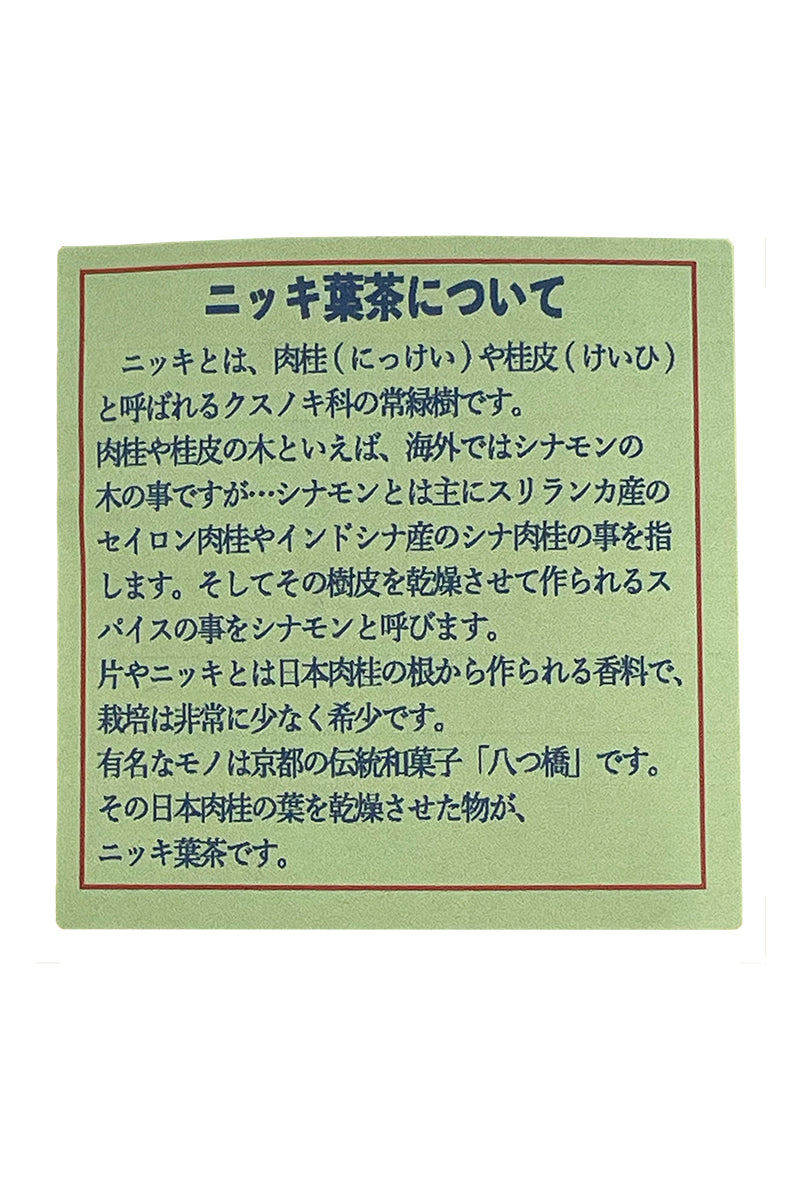 ニッキ葉茶について
ニッキとは、肉桂(にっけい)や桂皮(けいひ)
と呼ばれるクスノキ科の常緑樹です。
肉桂や桂皮の木といえば、海外ではシナモンの
木の事ですが…シナモンとは主にスリランカ産の
セイロン肉桂やインドシナ産のシナ肉桂の事を指
します。そしてその樹皮を乾燥させて作られるス
パイスの事をシナモンと呼びます。
片やニッキとは日本肉桂の根から作られる香料で、
栽培は非常に少なく希少です。
有名なモノは京都の伝統和菓子「八つ橋」です。
その日本肉桂の葉を乾燥させた物が、
ニッキ葉茶です。